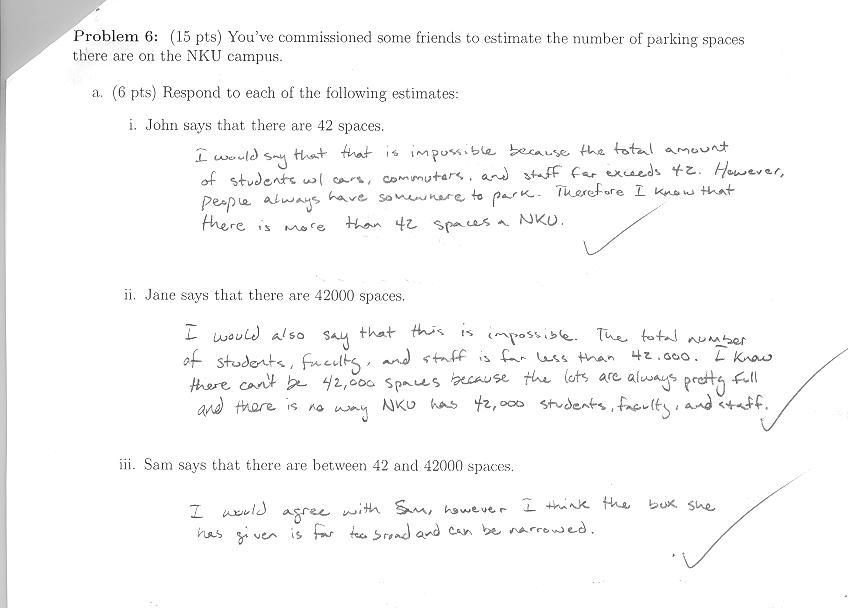 Problem 6: (15 pts) You've commissioned some friends to estimate the number of parking spaces
there are on the NKU campus.
a. (6 pts) Respond to each of the following estimates:
i. John says that there are 42 spaces.
I would say that that is impossible because the total amount
of students w/ cars, commutars, and staff far exceeds 42. However,
people always have somewhere to park. Therefore I know that
there is more than 42 spaces a NKU.
ii. Jane says that there are 42000 spaces.
I would also say that this is impossible. The total number
of students, faculty, and staff is far less than 42,000. I know
there can't be 42,000 spaces because the lots are always pretty full
and there is no way NKU has 42,000 students, faculty, and staff.
iii. Sam says that there are between 42 and 42000 spaces.
I would agree with Sam, however I think the box she
has given is far too broad and can be narrowed.